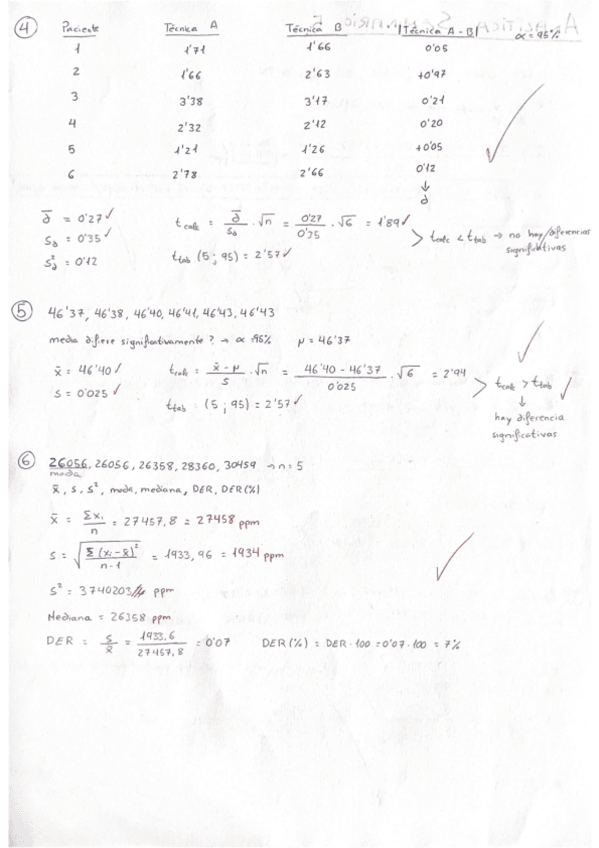 ④ Paciente Técnica A Técnica B |Técnica A - B| α = 95%
1 1'71 1'66 0'05
2 1'66 2'63 +0'97
3 3'38 3'17 0'21
4 2'32 2'12 0'20
5 1'21 1'26 +0'05
6 2'78 2'66 0'12
↓
d
d̄ = 0'27 ✓
S_d = 0'35 ✓
S²_d = 0'12
t_calc = d̄/S_d · √n = 0'27/0'35 · √6 = 1'89 ✓
t_tab (5 ; 95) = 2'57 ✓
> t_calc < t_tab → no hay diferencias
significativas
⑤ 46'37, 46'38, 46'40, 46'41, 46'43, 46'43
media difiere significativamente? → α = 95% μ = 46'37
x̄ = 46'40 ✓
S = 0'025 ✓
t_calc = x̄ - μ/S · √n = 46'40 - 46'37/0'025 · √6 = 2'94
t_tab (5 ; 95) = 2'57 ✓
> t_calc > t_tab ✓
↓
hay diferencia
significativas
⑥ 26056, 26056, 26358, 28360, 30459 → n = 5
moda
x̄, s, s², moda, mediana, DER, DER(%)
x̄ = Σxᵢ/n = 27457,8 = 27458 ppm
s = √(Σ(xᵢ - x̄)²/n-1) = 1933,96 = 1934 ppm
s² = 3740203 ppm
Mediana = 26358 ppm
DER = s/x̄ = 1933,6/27457,8 = 0'07 DER(%) = DER · 100 = 0'07 · 100 = 7%